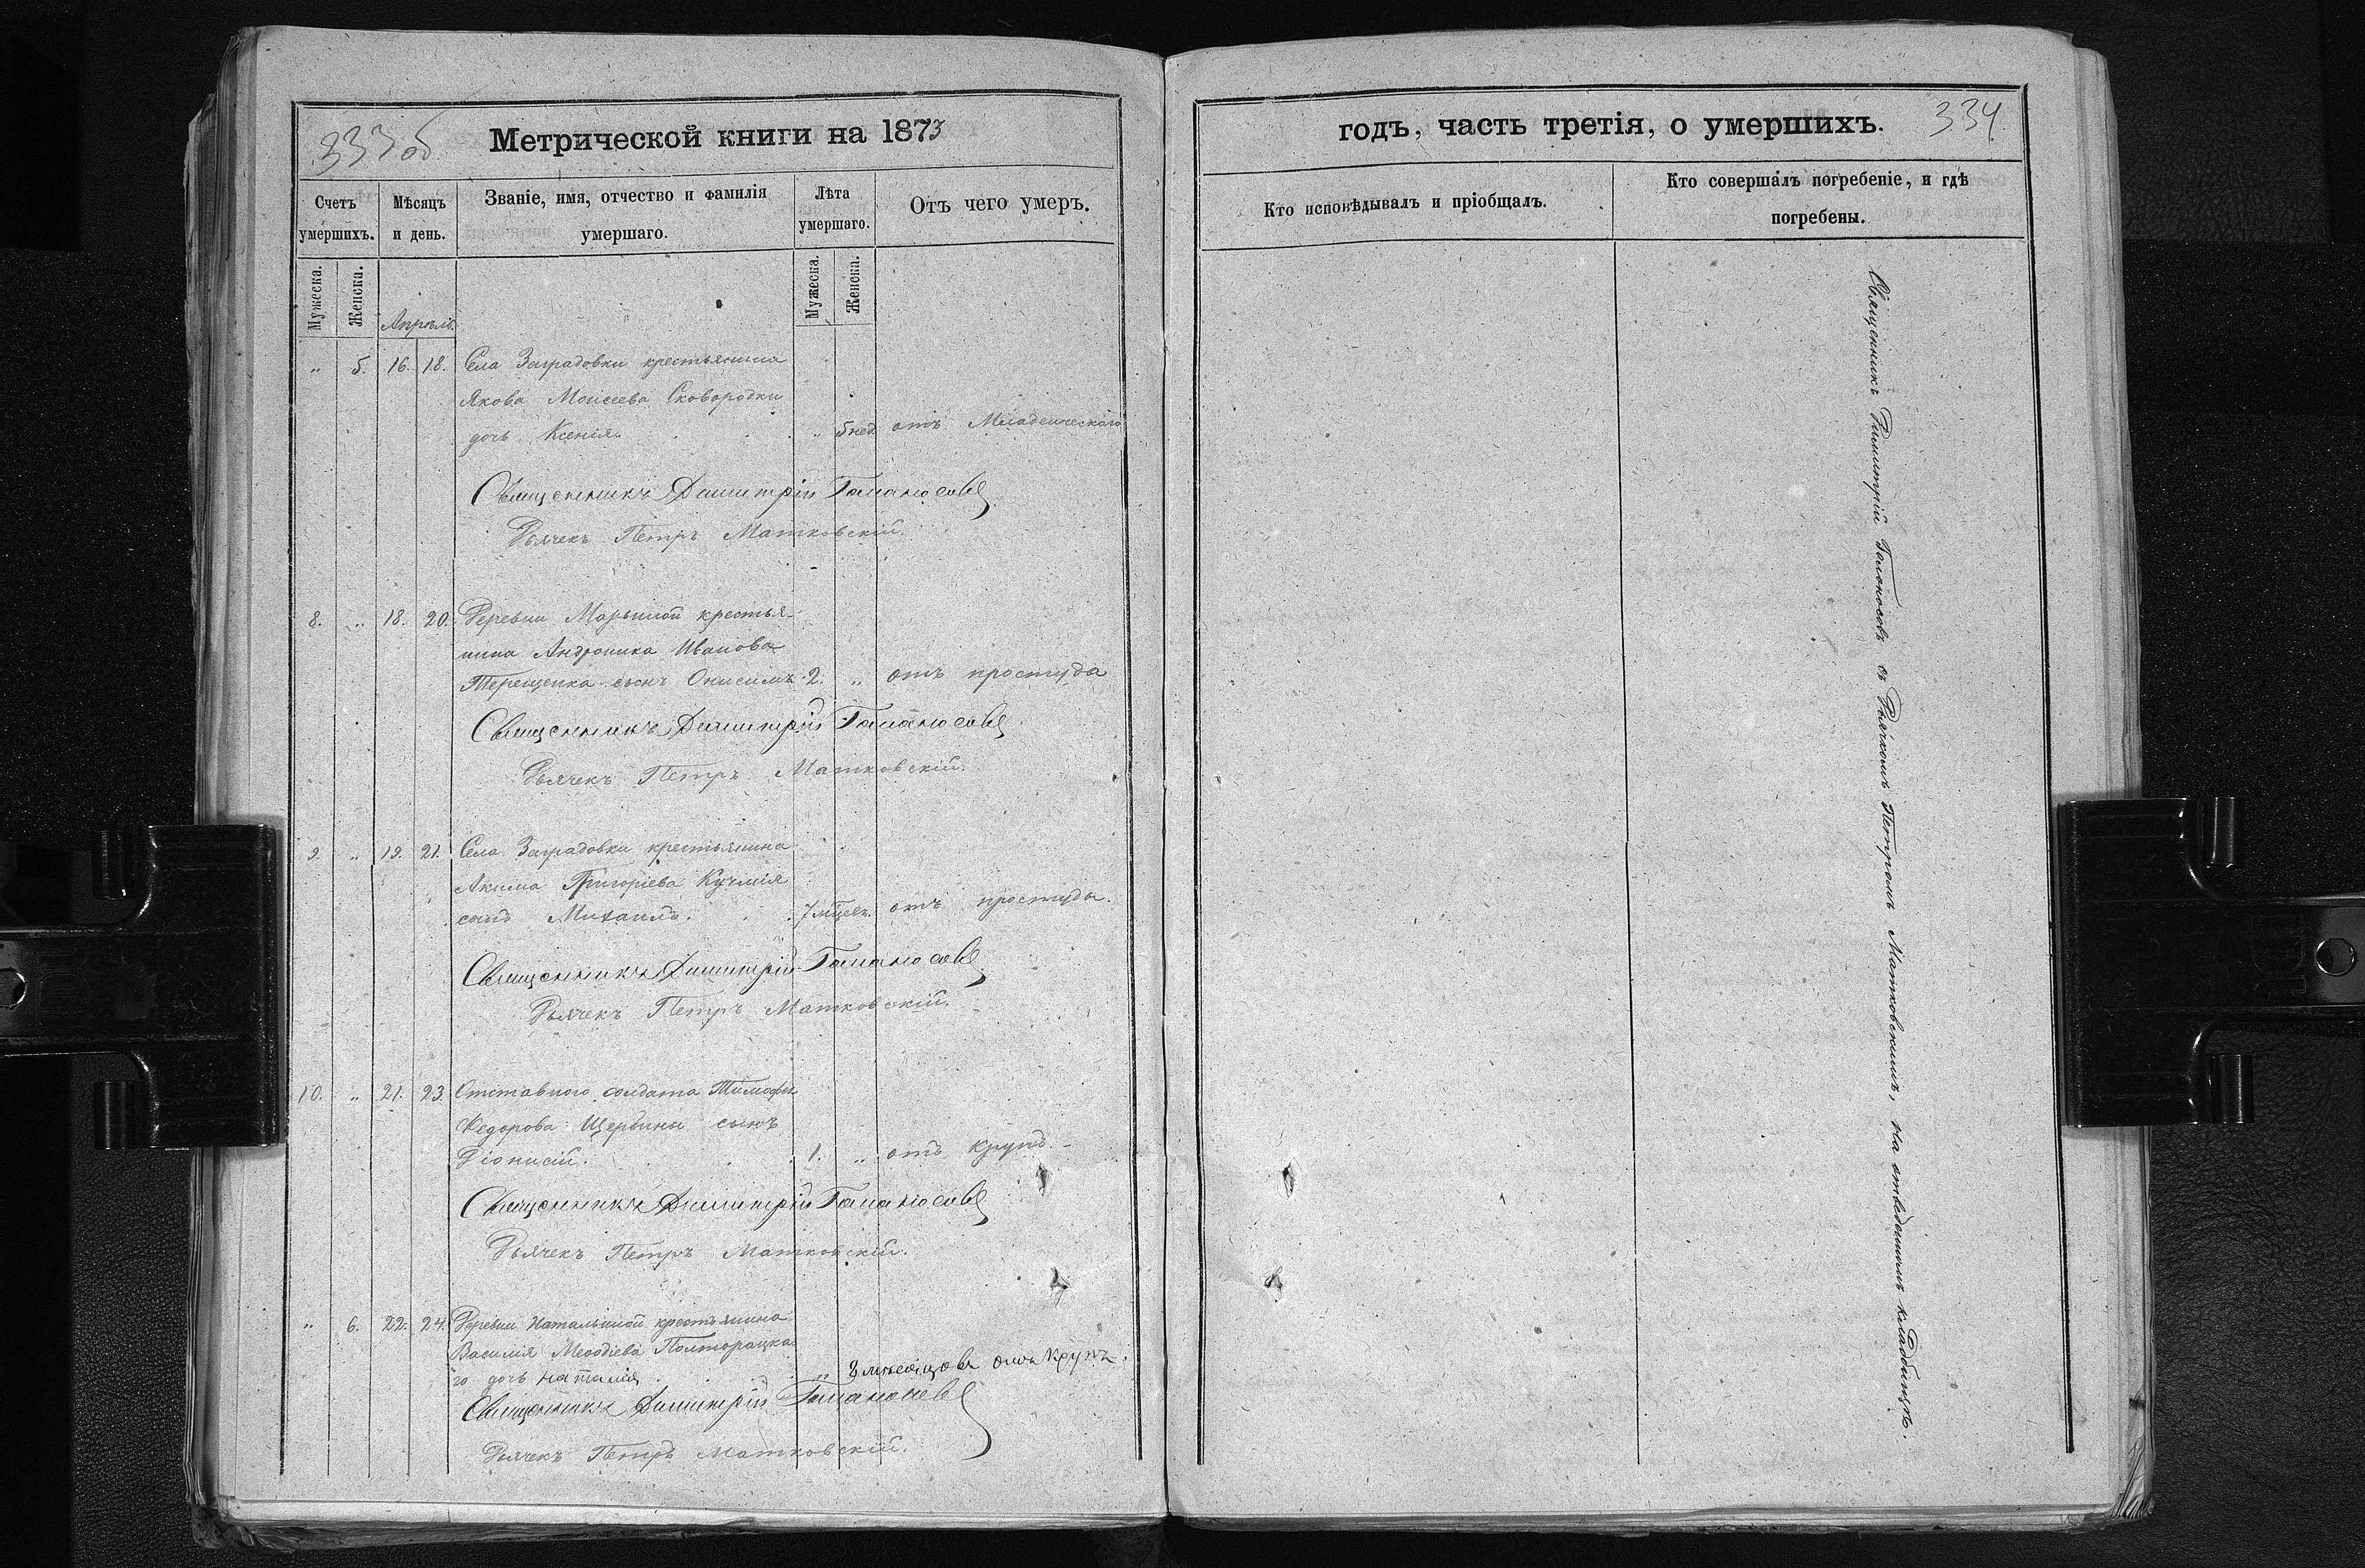 333 об
Метрической книги на 1873
Счетъ умершихъ.
Мѣсяцъ и день.
Званіе, имя, отчество и фамилія умершаго.
Лѣта умершаго.
Отъ чего умеръ.
Мужеска.
Женска.
Апрѣль.
Мужеска.
Женска.
" 5. 16. 18. Села Заградовки крестьянина
Якова Моисеева Сковородки
дочь Ксенія. " 5 нед. отъ Младенческаго
Священникъ Димитрій
Дьячекъ Петръ Матковскій.
8. " 18. 20. Деревни Марьиной крестья-
нина Андроника Иванова
Терещенка сынъ Онисимъ 2. " отъ простуда
Священникъ Димитрій
Дьячекъ Петръ Матковскій.
9. " 19. 21. Села Заградовки крестьянина
Акима Григоріева Кучмія
сынъ Михаилъ. 7 мѣсев. отъ простуды.
Священникъ Димитрій
Дьячекъ Петръ Матковскій.
10. " 21. 23. Отставного солдата Тимофея
Федорова Щербины сынъ
Діонисій. 1. " отъ крупъ.
Священникъ Димитрій
Дьячекъ Петръ Матковскій.
" 6. 22. 24. Деревни Натальиной крестьянина
Василія Меѳодіева Полторацка
го дочь Наталія. " мѣсяцовъ отъ крупъ.
Священникъ Димитрій
Дьячекъ Петръ Матковскій.
годъ, часть третія, о умершихъ.
334.
Кто исповѣдывалъ и пріобщалъ.
Кто совершалъ погребеніе, и гдѣ
погребены.
Священникъ Димитрій съ Дьячкомъ Петромъ Матковскимъ, на отведенномъ кладбищѣ.